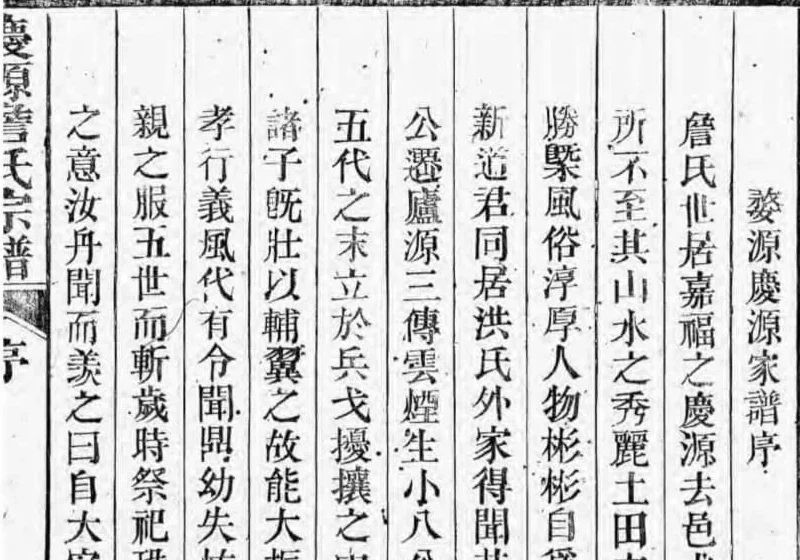 婺源慶源家譜序
詹氏世居嘉福之慶源去邑
所不至其山水之秀麗土田
勝槩風俗淳厚人物彬彬自
新道君同居洪氏外家得聞
公遷廬源三傳雲煙生小八公
五代之末立於兵戈擾攘之
諸子旣壯以輔翼之故能大振
孝行義風代有令聞鼎幼失
親之服五世而斬歲時祭祀
之意汝舟聞而羨之曰自大
慶源詹氏宗譜
序